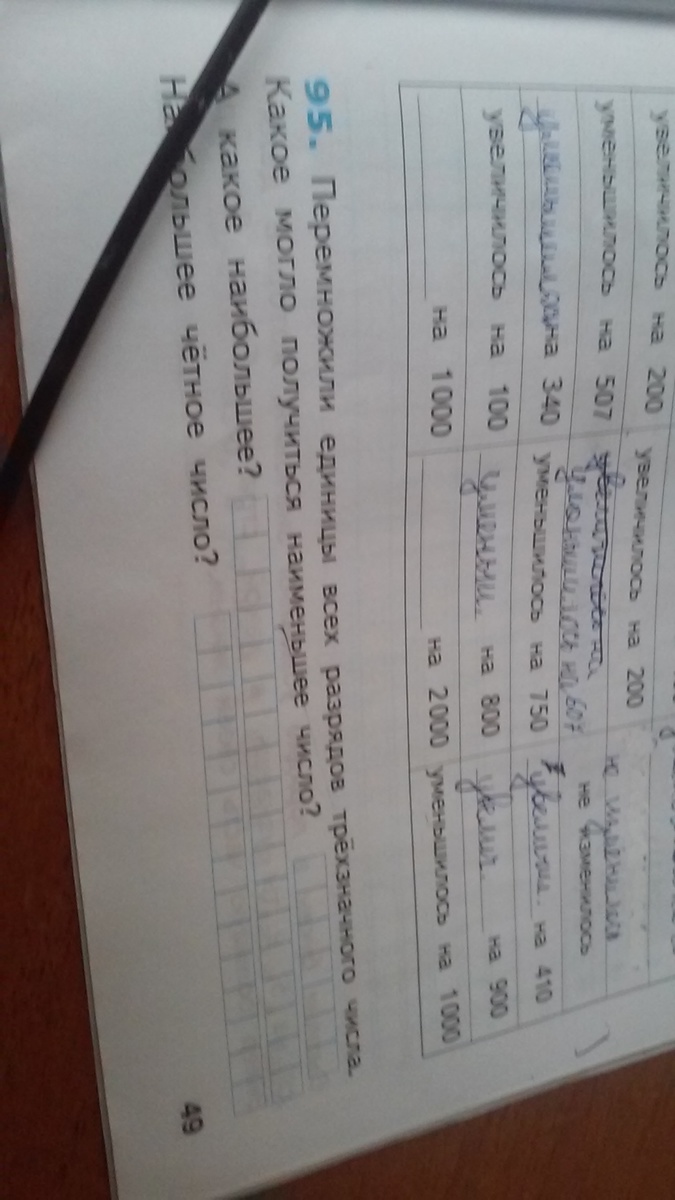 увеличилось на 200 увеличилось на 200
уменьшилось на 507 уменьшилось на 607 не изменилось
на 340 уменьшилось на 750 увеличи. на 410
увеличилось на 100 уменьш. на 800 увелич. на 900
на 1 000 на 2 000 уменьшилось на 1 000
95. Перемножили единицы всех разрядов трёхзначного числа.
Какое могло получиться наименьшее число?
А какое наибольшее?
Наибольшее чётное число?
49